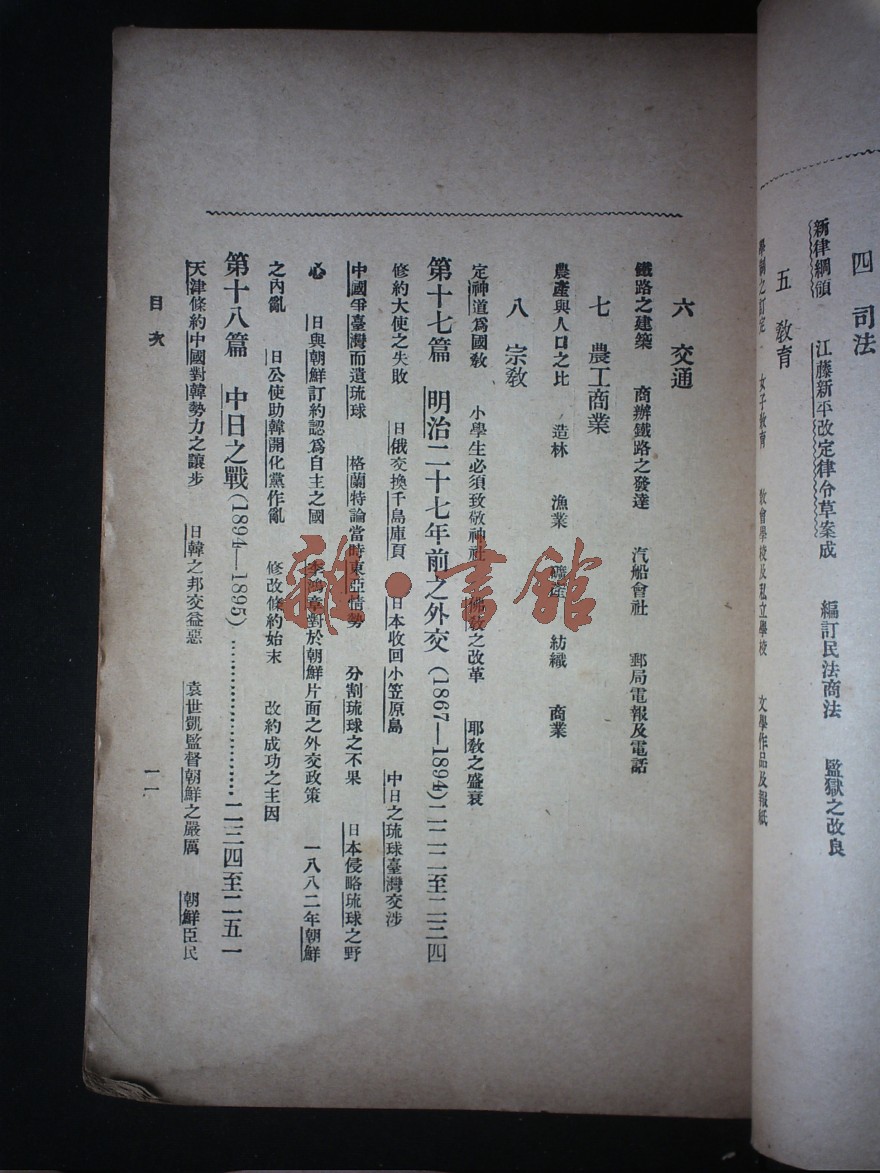 四　司法
新律綱領　江藤新平改定律令草案成　編訂民法商法　監獄之改良
五　敎育
學制之訂定　女子敎育　敎會學校及私立學校　文學作品及報紙
六　交通
鐵路之建築　商辦鐵路之發達　汽船會社　郵局電報及電話
七　農工商業
農產與人口之比　造林　漁業　礦產　紡織　商業
八　宗敎
定神道爲國敎　小學生必須致敬神社　佛敎之改革　耶敎之盛衰
第十七篇　明治二十七年前之外交(1867—1894)二二二至二三四
修約大使之失敗　日俄交換千島庫頁　日本收回小笠原島　中日之琉球臺灣交涉
中國爭臺灣而遺琉球　格蘭特論當時東亞情勢　分割琉球之不果　日本侵略琉球之野
心　日與朝鮮訂約認爲自主之國　李鴻章對於朝鮮片面之外交政策　一八八二年朝鮮
之內亂　日公使助韓開化黨作亂　修改條約始末　改約成功之主因
第十八篇　中日之戰(1894—1895)……………………二三四至二五一
天津條約中國對韓勢力之讓步　日韓之邦交益惡　袁世凱監督朝鮮之嚴厲　朝鮮臣民
目次
一一
雜·書館